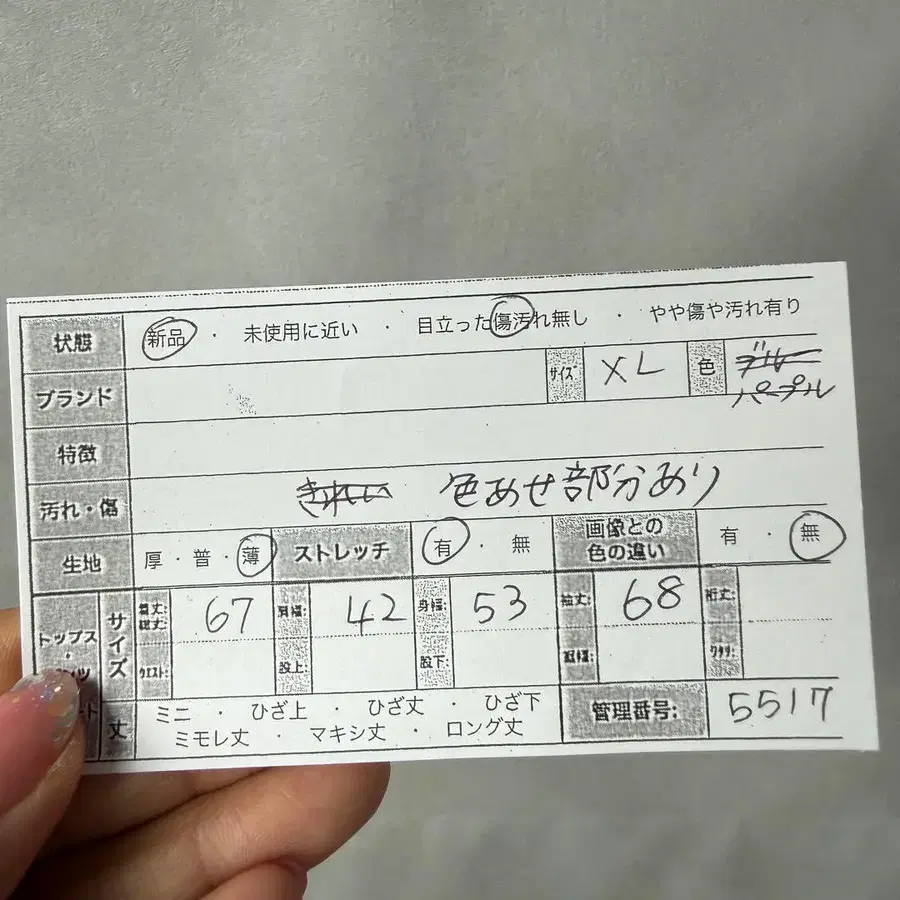 状態 新品 ・ 未使用に近い ・ 目立った傷汚れ無し ・ やや傷や汚れ有り
ブランド サイズ XL 色 ブルー パープル
特徴
汚れ・傷 きれい 色あせ部分あり
生地 厚・普・薄 ストレッチ 有 ・ 無 画像との色の違い 有 ・ 無
トップス・ サイズ 着丈: 総丈: 67 肩幅: 42 身幅: 53 袖丈: 68 裄丈:
ウエスト: 股上: 股下: ワタリ:
丈 ミニ ・ ひざ上 ・ ひざ丈 ・ ひざ下 管理番号: 5517
ミモレ丈 ・ マキシ丈 ・ ロング丈